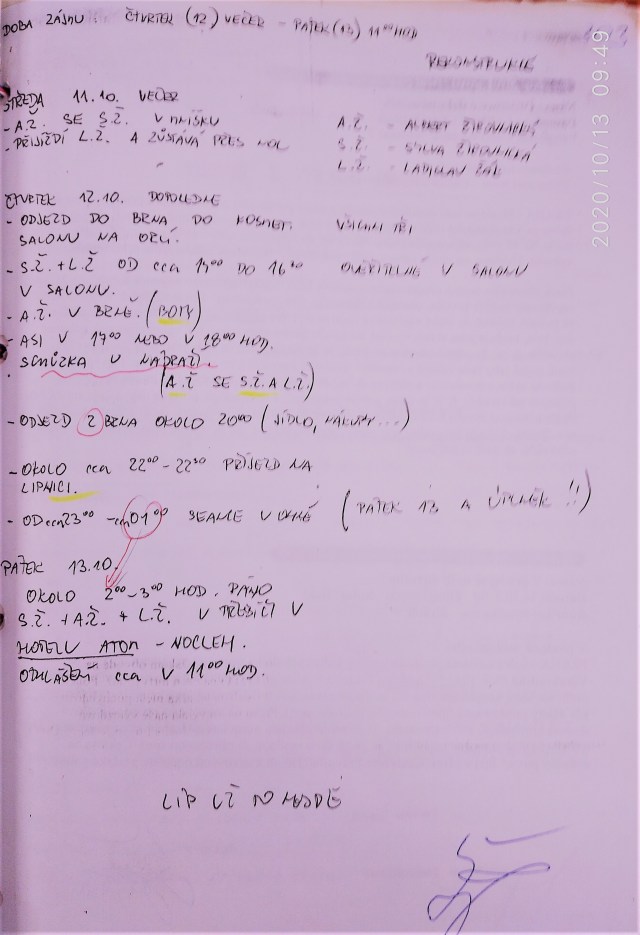 DOBA ZÁJMU: ČTVRTEK (12) VEČER - PÁTEK (13) 11⁰⁰ HOD
REKONSTRUKCE
STŘEDA 11.10. VEČER
- A.Ž. SE S.Ž. V
- PŘIJÍŽDÍ L.Ž. A ZŮSTÁVÁ PŘES NOC
A.Ž. - ALBERT
S.Ž. -
L.Ž. - LADISLAV ŽÁK
ČTVRTEK 12.10. DOPOLEDNE
- ODJEZD DO BRNA DO KOSMET. VŠICHNI TŘI
SALONU NA ORLÍ.
- S.Ž. + L.Ž OD cca DO OVĚŘITELNÉ V SALONU
V SALONU.
- A.Ž. V BRNĚ. (BOTY)
- ASI V 17⁰⁰ NEBO V 18⁰⁰ HOD.
SCHŮZKA U NÁDRAŽÍ.
(A.Ž SE S.Ž. A L.Ž.)
- ODJEZD Z BRNA OKOLO 20⁰⁰ (JÍDLO, NÁKUPY...)
- OKOLO cca 22⁰⁰ - 22³⁰ PŘÍJEZD NA
LIPNICI.
- OD cca 23⁰⁰ - cca 01⁰⁰ SEANCE V (PÁTEK 13 A ÚPLNĚK !!)
PÁTEK 13.10.
OKOLO 2⁰⁰-3⁰⁰ HOD. RÁNO
S.Ž. + A.Ž. + L.Ž. V TŘEBÍČI V
HOTELU ATOM - NOCLEH.
ODHLÁŠENÍ cca V 11⁰⁰ HOD.
LÍP UŽ TO NEJDE
2020/10/13 09:49